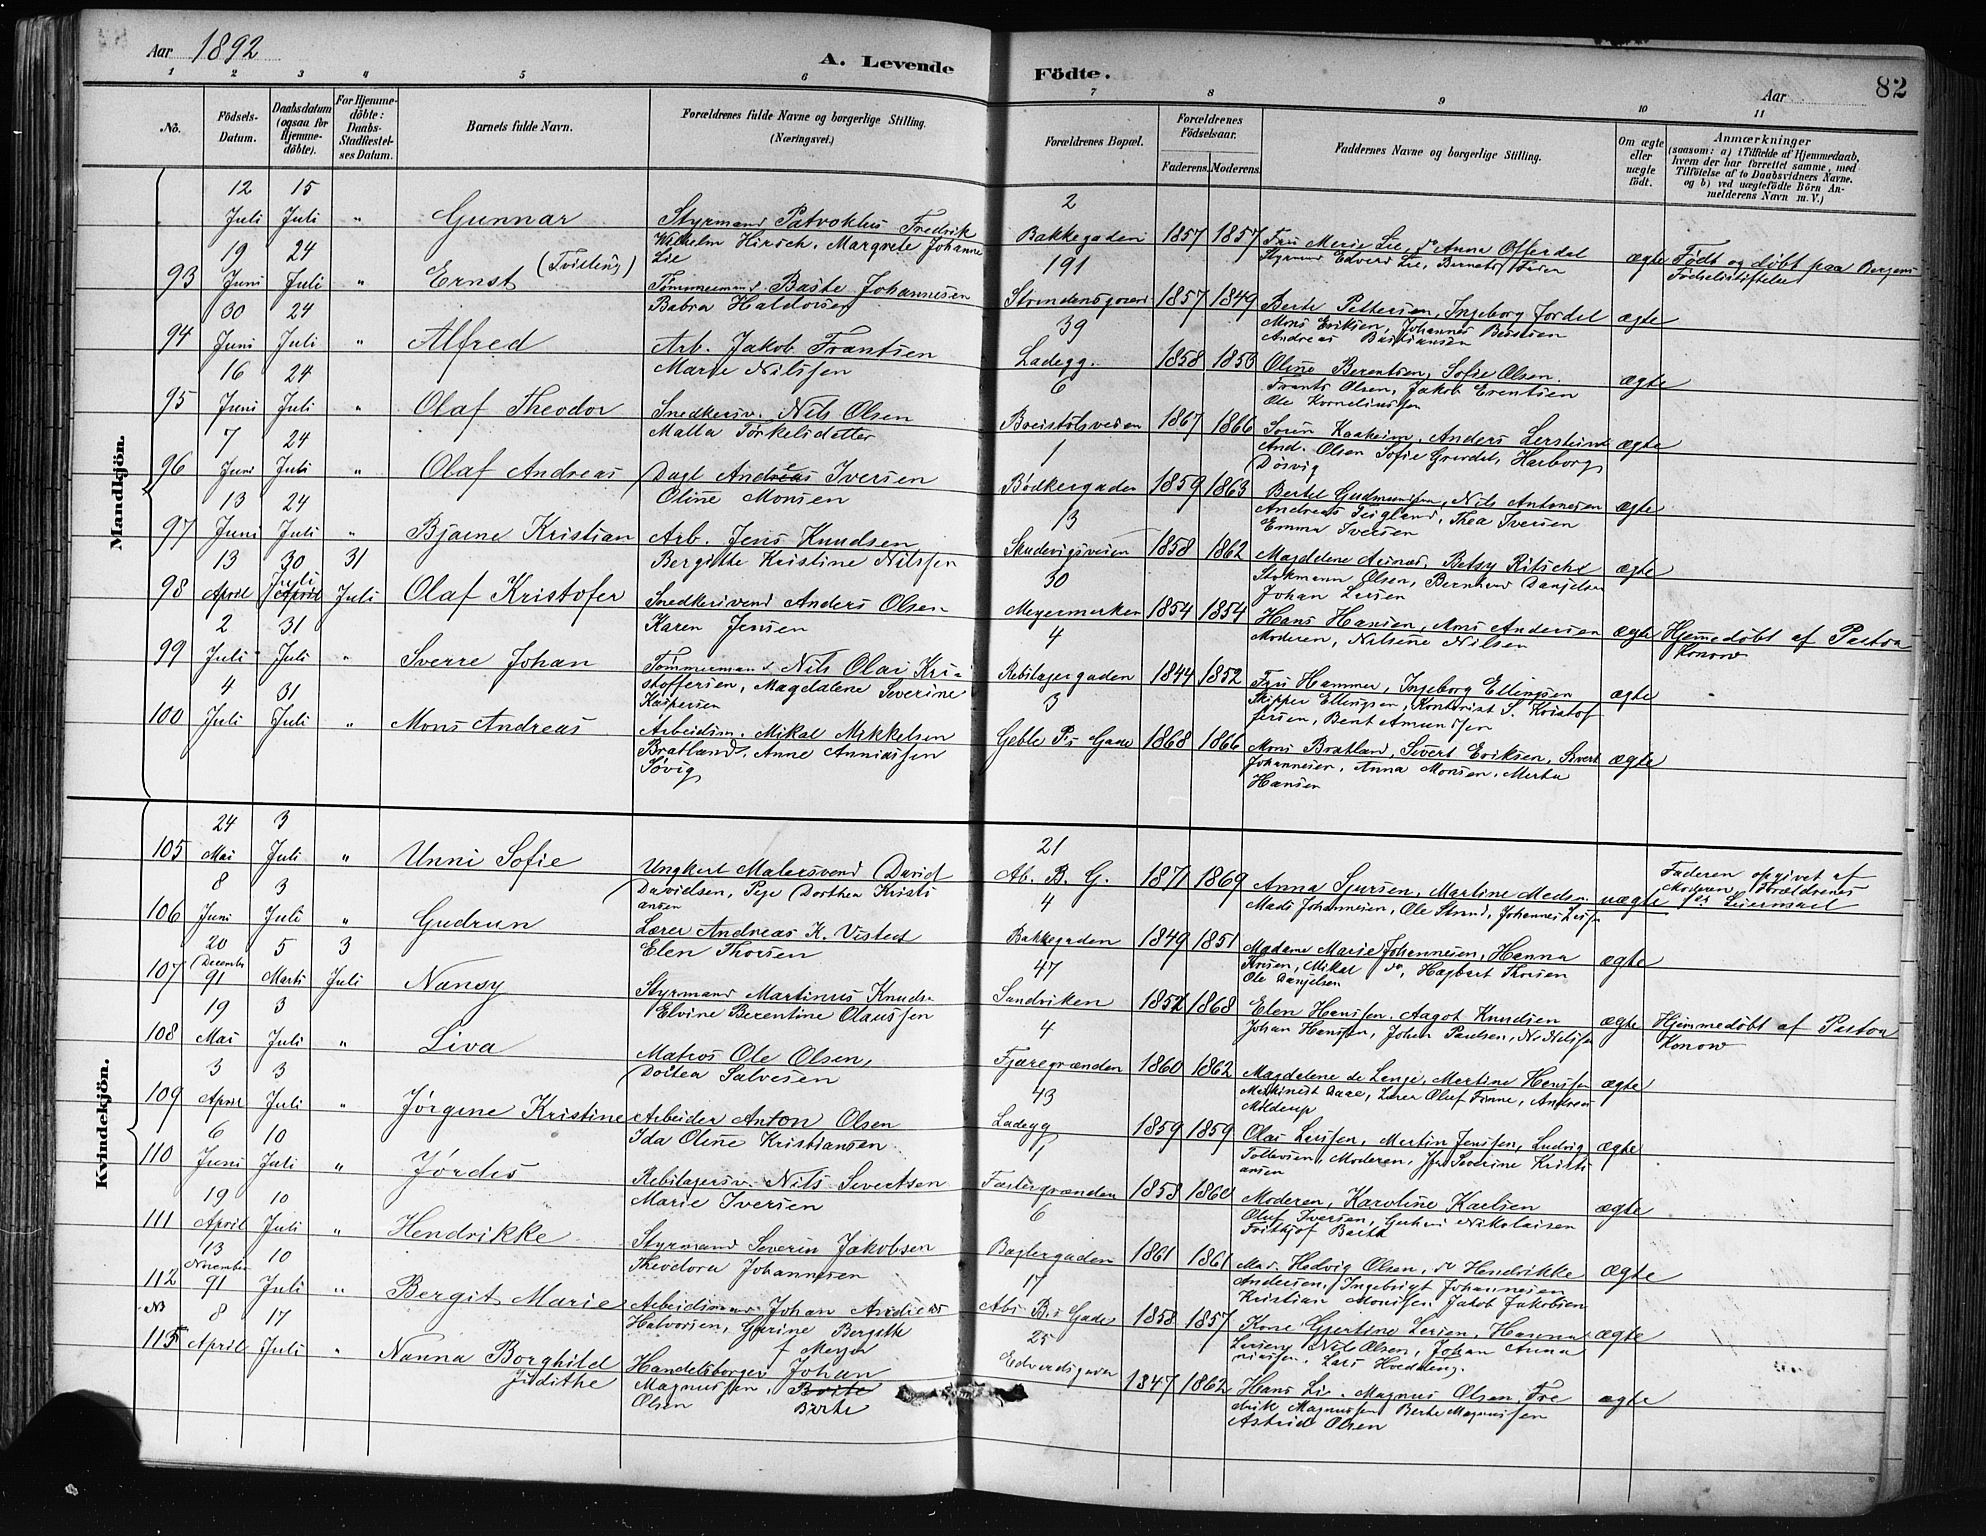 Aar 1892
A. Levende
Födte.
Aar
82
1 2 3 4 5 6 7 8 9 10 11
No.
Födsels-Datum.
Daabsdatum (ogsaa for Hjemme-döbte).
For Hjemme-döbte: Daabs-Stadfæstel-ses Datum.
Barnets fulde Navn.
Forældrenes fulde Navne og borgerlige Stilling.
(Næringsvei.)
Forældrenes Bopæl.
Forældrenes Födselsaar.
Faderens. Moderens.
Faddernes Navne og borgerlige Stilling.
Om ægte eller uægte födt.
Anmærkninger
(saasom: a) i Tilfælde af Hjemmedaab,
hvem der har forrettet samme, med
Tilföielse af to Daabsvidners Navne.
og b) ved uægtefödte Börn An-
melderens Navn m.V.)
Mandkjön.
12 Juli 15 Juli " Gunnar
Styrmand Patroklus Fredrik
Wilhelm Hirsch. Margrete Johanne
Lie
2
Bakkegaden 1857 1857 Fru Marie Lie, do Anna Offerdal
Styrmd Edvard Lie,
ægte Födt og döbt paa Bergens
Födselsstiftelse
93 19 Juni 24 Juli " Ernst (Tvilling)
Tömmermand Baste Johannesen
Babra Haldorsen
191
1857 1849 Berte Pettersen, Ingeborg Jordal
Mons Eriksen, Johannes
Andreas Bastiansen
ægte
94 30 Juni 24 Juli " Alfred
Arb. Jakob Frantsen
Marie Nilssen
39
Ladegg. 1858 1853 Oline Berentsen, Sofie Olsen.
Frants Olsen, Jakob
Ole Korneliussen
ægte
95 16 Juni 24 Juli " Olaf Theodor
Snedkersv. Nils Olsen
Malla Torkelsdatter
6
1867 1866 Anders
And. Olsen Sofie
ægte
96 7 Juni 24 Juli " Olaf Andreas
Dagl Andreas Iversen
Oline Monsen
1
Bødkergaden 1859 1863 Bertel Gudmundsen, Nils Antonesen
Andreas Teigland, Thea Iversen
Emma Iversen
ægte
97 13 Juni 24 Juli " Bjarne Kristian
Arb. Jens Knudsen
Bergitte Kristine Nilssen
13
Skudevigsveien 1858 1862 Magdalene Betsy
Olsen, Bernhard Danjelsen
Johan Larsen
ægte
98 13 April 30 Juli 31 Juli Olaf Kristofer
Snedkersvend Anders Olsen
Karen Jensen
30
Meyermarken 1854 1854 Hans Hansen, Mons Andersen
Moderen, Nilsine Nilsen
ægte Hjemmedøbt af Pastor
Konow
99 2 Juli 31 Juli " Sverre Johan
Tømmermand Nils Olai Kri-
stoffersen, Magdalene Severine
Kaspersen
4
Rebslagergaden 1844 1852 Fru Hammer, Ingeborg Ellingsen
Skipper Ellingsen, Kontorist S. Kristof
fersen, Bent Amundsen
ægte
100 4 Juli 31 Juli " Mons Andreas
Arbeidsm. Mikal Mikkelsen
Bratland, Anne Anniassen
Søvig
3
Geble P.s Gade 1868 1866 Mons Bratland, Sivert Eriksen, Sivert
Johannesen, Anna Monsen, Marta
Hansen
ægte
Kvindekjön.
105 24 Mai 3 Juli " Unni Sofie
Ungkarl Malersvend David
Davidsen, Pige Dorthea Kristi
ansen
21
Ab. B. G. 1871 1869 Anna Sjursen, Martine
Mads Johannesen, Ole Strand, Johannes
uægte Faderen opgivet af
Moderen, Forældrenes
1ste Leiermaal
106 8 Juni 3 Juli " Gudrun
Lærer Andreas K. Visted
Elen Thorsen
4
Bakkegaden 1849 1851 Madame Marie Johannesen, Hanna
Mikal do, Hagbart Thorsen
Ole Danjelsen
ægte
107 20 December 91 5 Marts 3 Juli Nansy
Styrmand Martinus Knuds
Elvine Berentine Olaussen
47
Sandviken 1852 1868 Elen Hanssen, Aagot Knudsen
Johan Hanssen, Johan Paulsen, Ns Nilssen
ægte Hjemmedøbt af Pastor
Konow
108 19 Mai 3 Juli " Liva
Matros Ole Olsen,
Dortea Salvesen
4
Fjæregrænden 1860 1862 Magdalene de Lange, Martine Hanssen
Maskinist Lærer Oluf Finne, Andreas
ægte
109 3 April 3 Juli " Jørgine Kristine
Arbeider Anton Olsen
Ida Oline Kristiansen
43
Ladegg 1859 1859 Olai Larssen, Martin Jenssen, Ludvig
Tollevsen, Moderen, Jfr Severine Kristi
ansen
ægte
110 6 Juni 10 Juli " Jørdis
Rebslagersv. Nils Sivertsen
Marie Iversen
1858 1860 Moderen, Karoline Karlsen
Oluf Iversen, Nikolaisen
Frithjof
ægte
111 19 April 10 Juli " Hendrikke
Styrmand Severin Jakobsen
Theodora Johannesen
6
Baglergaden 1861 1861 Mad. Hedvig Olsen, do Hendrikke
Andersen, Ingebrigt Johannesen
Kristian Monssen Jakob Jakobsen
ægte
112 13 November 91 10 Juli " Bergit Marie
Arbeidsmand Johan Andreas
Halvorsen, Gurine Bergitte
Meyer
17
Abs B.s Gade 1858 1857 Kone Gjertine Larsen, Hanna
Larsen, Nils Olsen, Johan Anna
niassen, Lars
ægte
NB
115 8 April 17 Juli " Nanna Borghild
Judithe
Handelsborger Johan
Magnussen, Berte
Olsen
25
Edvardsgaden 1847 1862 Hans Lie, Magnus Olsen, Fre
drik Magnussen Berte Magnussen
Astrid Olsen
ægte